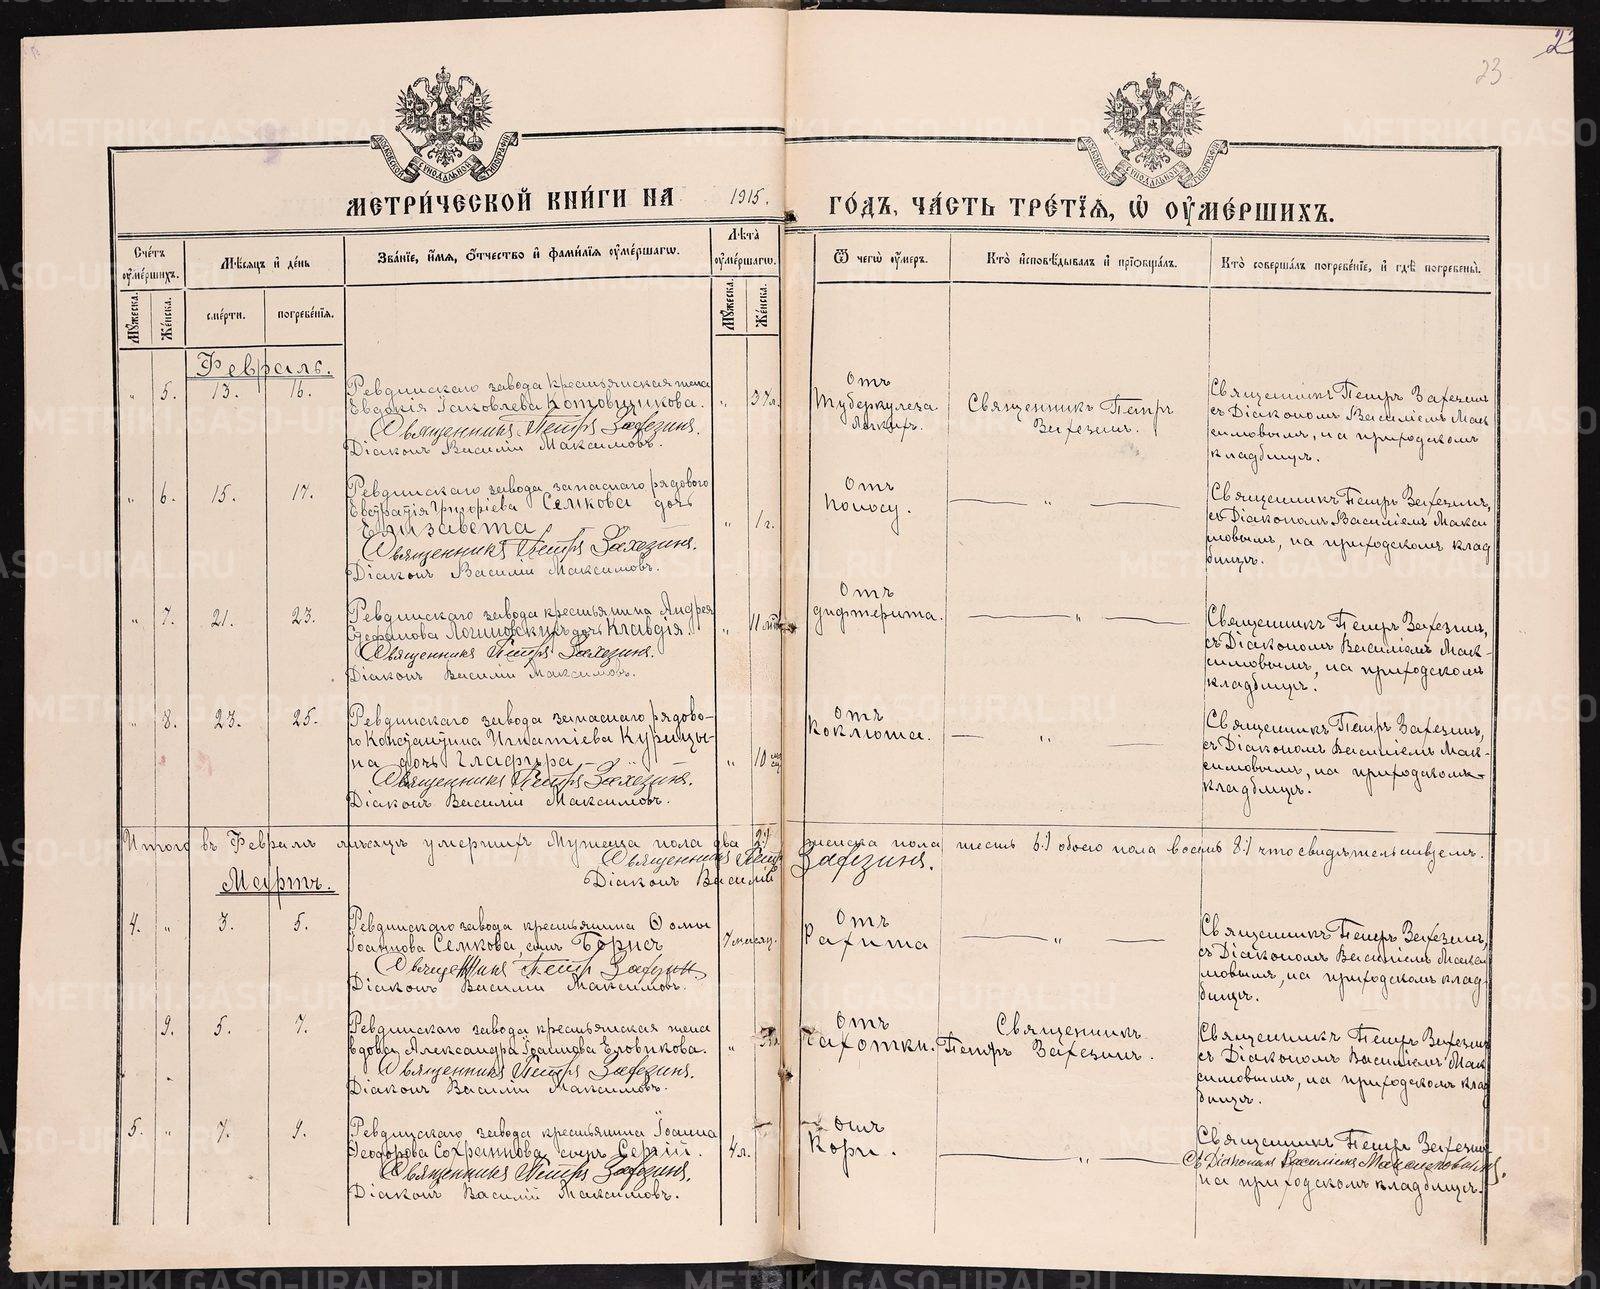 23
МОСКОВСКОЙ СѴНОДАЛЬНОЙ ТИПОГРАФІИ
МОСКОВСКОЙ СѴНОДАЛЬНОЙ ТИПОГРАФІИ
МЕТРИ́ЧЕСКОЙ КНИ́ГИ НА 1915. ГО́ДЪ, ЧА́СТЬ ТРЕ́ТІѦ, Ѡ ОУ҆МЕ́РШИХЪ.
Сче́тъ оу҆ме́ршихъ.
Мѣ́сяцъ и҆ де́нь
Зва́ніе, и҆́мѧ, ѻ҆́тчество и҆ фами́лїѧ оу҆ме́ршагѡ.
Лѣта̀ оу҆ме́ршагѡ.
Ѿ чегѡ̀ оу҆́меръ.
Кто̀ и҆сповѣ́дывалъ и҆ прїѡбща́лъ.
Кто̀ соверша́лъ погребе́нїе, и҆ гдѣ̀ погребены̀.
Мꙋ́жеска.
Же́нска.
сме́рти.
погребе́нїѧ.
Мꙋ́жеска.
Же́нска.
Февраль.
" 5. 13. 16.
Ревдинскаго завода крестьянская жена
Евдокія Іаковлева Котовщикова.
Священникъ Петръ Захезинъ.
Діаконъ Василій Максимовъ.
" 37 л.
Отъ
туберкулеза
легкихъ.
Священникъ Петръ
Захезинъ.
Священникъ Петръ Захезинъ
съ Діакономъ Василіемъ Мак
симовымъ, на приходскомъ
кладбищѣ.
" 6. 15. 17.
Ревдинскаго завода запаснаго рядового
Евстратія Григоріева Семкова дочь
Елизавета
Священникъ Петръ Захезинъ.
Діаконъ Василій Максимовъ.
" 1 г.
Отъ
поносу.
"
Священникъ Петръ Захезинъ,
съ Діакономъ Василіемъ Макси
мовымъ, на приходскомъ клад
бищѣ.
" 7. 21. 23.
Ревдинскаго завода крестьянина Андрея
Стефанова Логиновскихъ дочь Клавдія.
Священникъ Петръ Захезинъ.
Діаконъ Василій Максимовъ.
" 11 лѣтъ
Отъ
дифтерита.
"
Священникъ Петръ Захезинъ,
съ Діакономъ Василіемъ Мак-
симовымъ, на приходскомъ
кладбищѣ.
" 8. 23. 25.
Ревдинскаго завода запаснаго рядово-
го Константина Игнатіева Курицы-
на дочь Глафира
Священникъ Петръ Захезинъ.
Діаконъ Василій Максимовъ.
" 10 мѣ
сяц
Отъ
коклюша.
"
Священникъ Петръ Захезинъ,
съ Діакономъ Василіемъ Мак-
симовымъ, на приходскомъ
кладбищѣ.
Итого въ Февралѣ мѣсяцѣ умершихъ Мужеска пола два 2:) женска пола шесть 6:) обоего пола восемь 8:) что свидѣтельствуемъ.
Священникъ Петръ Захезинъ.
Діаконъ Василій
Мартъ.
4. " 3. 5.
Ревдинскаго завода крестьянина Ѳомы
Іоаннова Семкова, сынъ Борисъ
Священникъ Петръ Захезинъ.
Діаконъ Василій Максимовъ.
7 мѣсяц.
Отъ
Рахита
"
Священникъ Петръ Захезинъ,
съ Діакономъ Василіемъ Макси
мовымъ, на приходскомъ клад-
бищѣ.
9. 5. 7.
Ревдинскаго завода крестьянская жена
вдова Александра Іоаннова Еловикова.
Священникъ Петръ Захезинъ.
Діаконъ Василій Максимовъ.
"
Отъ
Чахотки.
Священникъ
Петръ Захезинъ.
Священникъ Петръ Захезинъ
съ Діакономъ Василіемъ Мак
симовымъ, на приходскомъ клад
бищѣ.
5. " 7. 9.
Ревдинскаго завода крестьянина Іоанна
Ѳеодорова Сохраннова сынъ Сергій.
Священникъ Петръ Захезинъ.
Діаконъ Василій Максимовъ.
4 л.
Отъ
Кори.
"
Священникъ Петръ Захезинъ
съ Діакономъ Василіемъ Максимовымъ,
на приходскомъ кладбищѣ.
METRIKI.GASO-URAL.RU